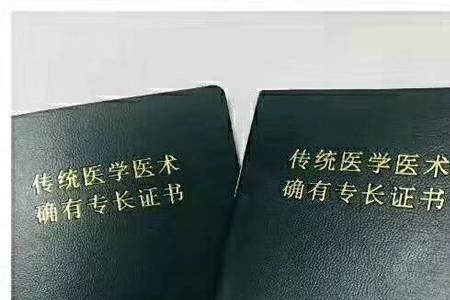 传统医学医术
确有专长证书
传统医学医术
确有专长证书